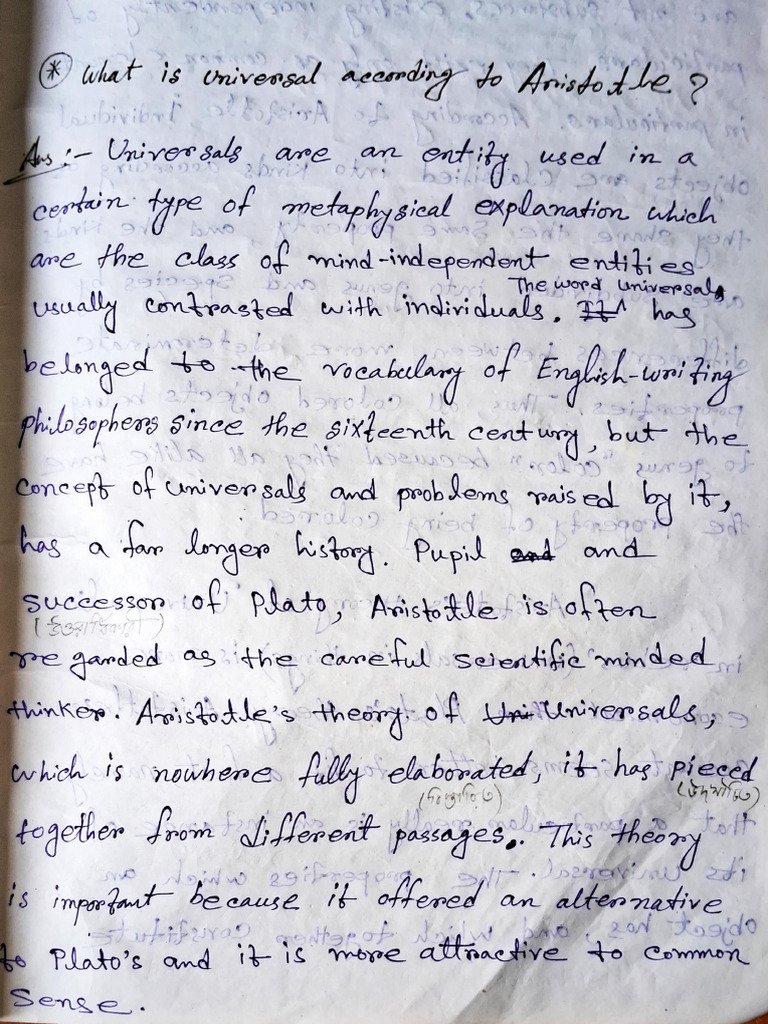 * What is universal according to Aristotle?
Ans :- Universals are an entity used in a
certain type of metaphysical explanation which
are the class of mind-independent entities
The word universals
usually contrasted with individuals. It has
belonged to the vocabulary of English-writing
philosophers since the sixteenth century, but the
concept of universals and problems raised by it,
has a far longer history. Pupil and and
successor of Plato, Aristotle is often
(উত্তরাধিকারী)
regarded as the careful scientific minded
thinker. Aristotle's theory of Uni Universals,
which is nowhere fully elaborated, it has pieced
together from different passages. This theory
is important because it offered an alternative
to Plato's and it is more attractive to common
sense.